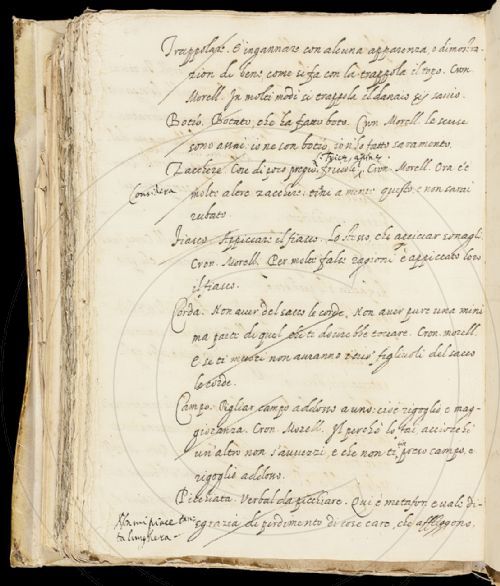 Trappolare. È ingannare con alcuna apparenza, o dimostra
tion di bene, come si fa con la trappola il topo. Cron
Morell. In molti modi si trappola el danaio
Botio. Botato, che ha fatto boto. Cron Morell. le scuse
sono anni, io ne son botio, io n'ho fatto saramento.
Zacchere. Cose di poco pregio, frivole, Cron. Morell. Ora c'è
Considera
molte altre zacchere: tieni a mente questo, e non sarai
rubato
Fiasco. Appiccare il fiasco. Lo stesso, che apiccar sonagli
Cron. Morell. Per molte false ragioni è appiccato loro
il fiasco.
Corda. Non aver del sacco le corde. Non aver pure una mini
ma parte di quel che ti dovrebbe toccare. Cron. Morell
E se ti muori non auranno i tuoi figliuoli del sacco
le corde.
Campo. Pigliar campo addosso a uno: cioè rigoglio e mag-
gioranza. Cron. Morell. Il perchè lo fai, acciocchi
un'altro non s'auvezzi, e che non ti pigli campo, e
rigoglio addosso.
Picchiata. Verbal da picchiare. Qui è metafor. e vale di-
Non mi piace tan
ta limphera
sgrazia di perdimento di cose care, che affliggono.